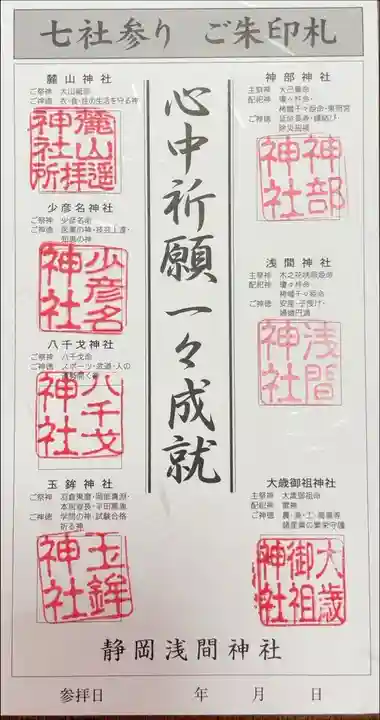 七社参り ご朱印札
神部神社
主祭神 大己貴命
配祀神 瓊々杵命・
栲幡千々姫命・東照宮
ご神徳 延命長寿・縁結び
除災招福
神部
神社
浅間神社
主祭神 木之花咲耶姫命
配祀神 瓊々杵命
栲幡千々姫命
ご神徳 安産・子授け・
婚姻円満
浅間
神社
大歳御祖神社
主祭神 大歳御祖命
配祀神 雷神
ご神徳 農・漁・工・商業等
諸産業の繁栄守護
大歳
御祖
神社
心中祈願一々成就
麓山神社
ご祭神 大山祇命
ご神徳 衣・食・住の生活を守る神
麓山
神社遥
拝所
少彦名神社
ご祭神 少彦名命
ご神徳 医薬の神・技芸上達・
知恵の神
少彦名
神社
八千戈神社
ご祭神 八千戈命
ご神徳 スポーツ・武道・人の
運勢開く神
八千戈
神社
玉鉾神社
ご祭神 羽倉東麿・岡部真淵・
本居宣長・平田篤胤
ご神徳 学問の神・試験合格
祈る神
玉鉾
神社
静岡浅間神社
参拝日 年 月 日